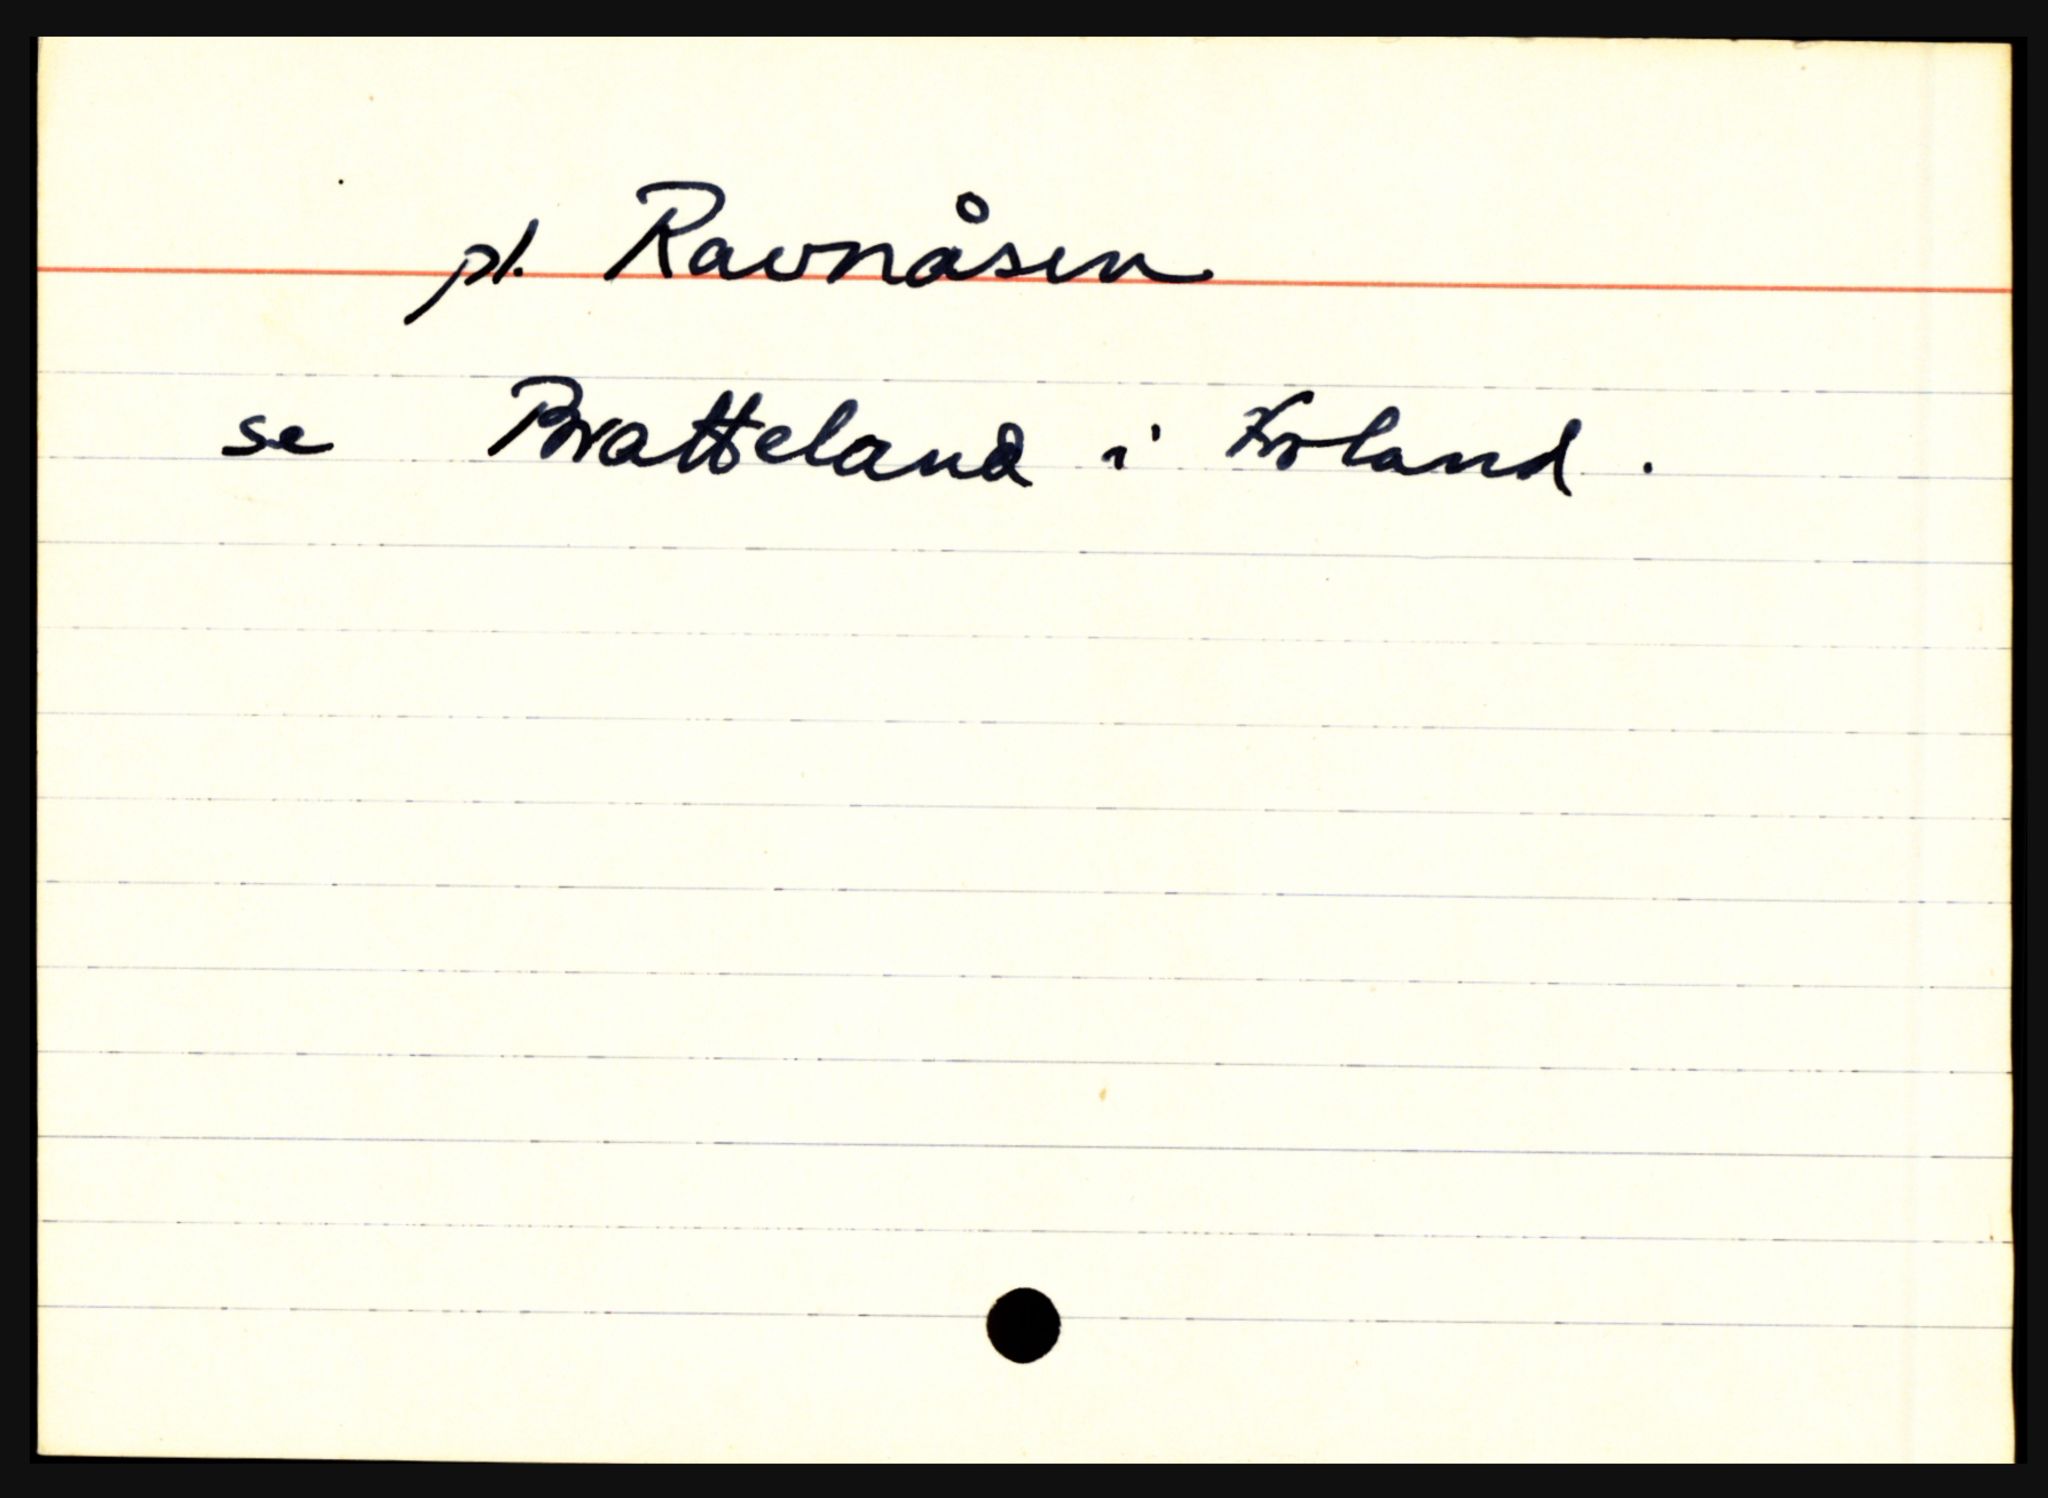 pl. Ravnåsen
se Bratteland i Froland.